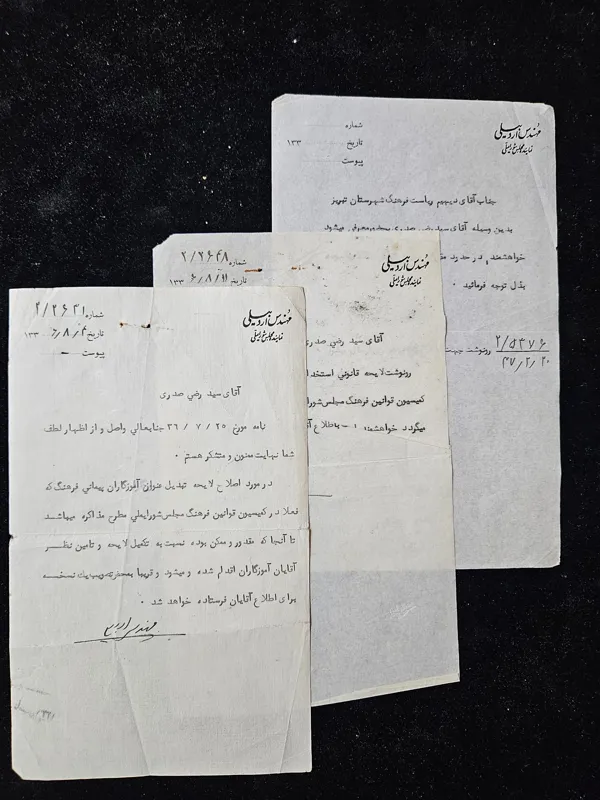 مهندس اردبیلی
نماینده مجلس شورایملی
شماره
تاریخ ۱۳۳
پیوست
جناب آقای دیهیم ریاست فرهنگ شهرستان تبریز
بدین وسیله آقای سید رضی صدری معرفی میشود
خواهشمند در حدود
بذل توجه فرمائید .
۲/۵۳۷۶ رونوشت جهت
۳۷/۲/۲۰
مهندس اردبیلی
نماینده مجلس شورایملی
شماره ۲/۲۶۴۸
تاریخ ۶/۸/۱۱ ۱۳۳
آقای سید رضی صدری
رونوشت لایحه قانونی استخدا
کمیسیون قوانین فرهنگ مجلس شورا
میگردد خواهشمند ۱ - به اطلاع
مهندس اردبیلی
نماینده مجلس شورایملی
شماره ۲/۲۶۳۱
تاریخ ۶/۸/۴ ۱۳۳
پیوست —
آقای سید رضی صدری
نامه مورخ ۳۶/۷/۲۵ جنابعالی واصل و از اظهار لطف
شما نهایت ممنون و متشکر هستم .
در مورد اصلاح لایحه تبدیل عنوان آموزگاران پیمانی فرهنگ که
فعلا در کمیسیون قوانین فرهنگ مجلس شورایملی مطرح مذاکره میباشد
تا آنجا که مقدور و ممکن بوده نسبت به تکمیل لایحه و تامین نظر
آقایان آموزگاران اقدام شده و میشود و قریبا بمحض تصویب یك نسخه
برای اطلاع آقایان فرستاده خواهد شد .